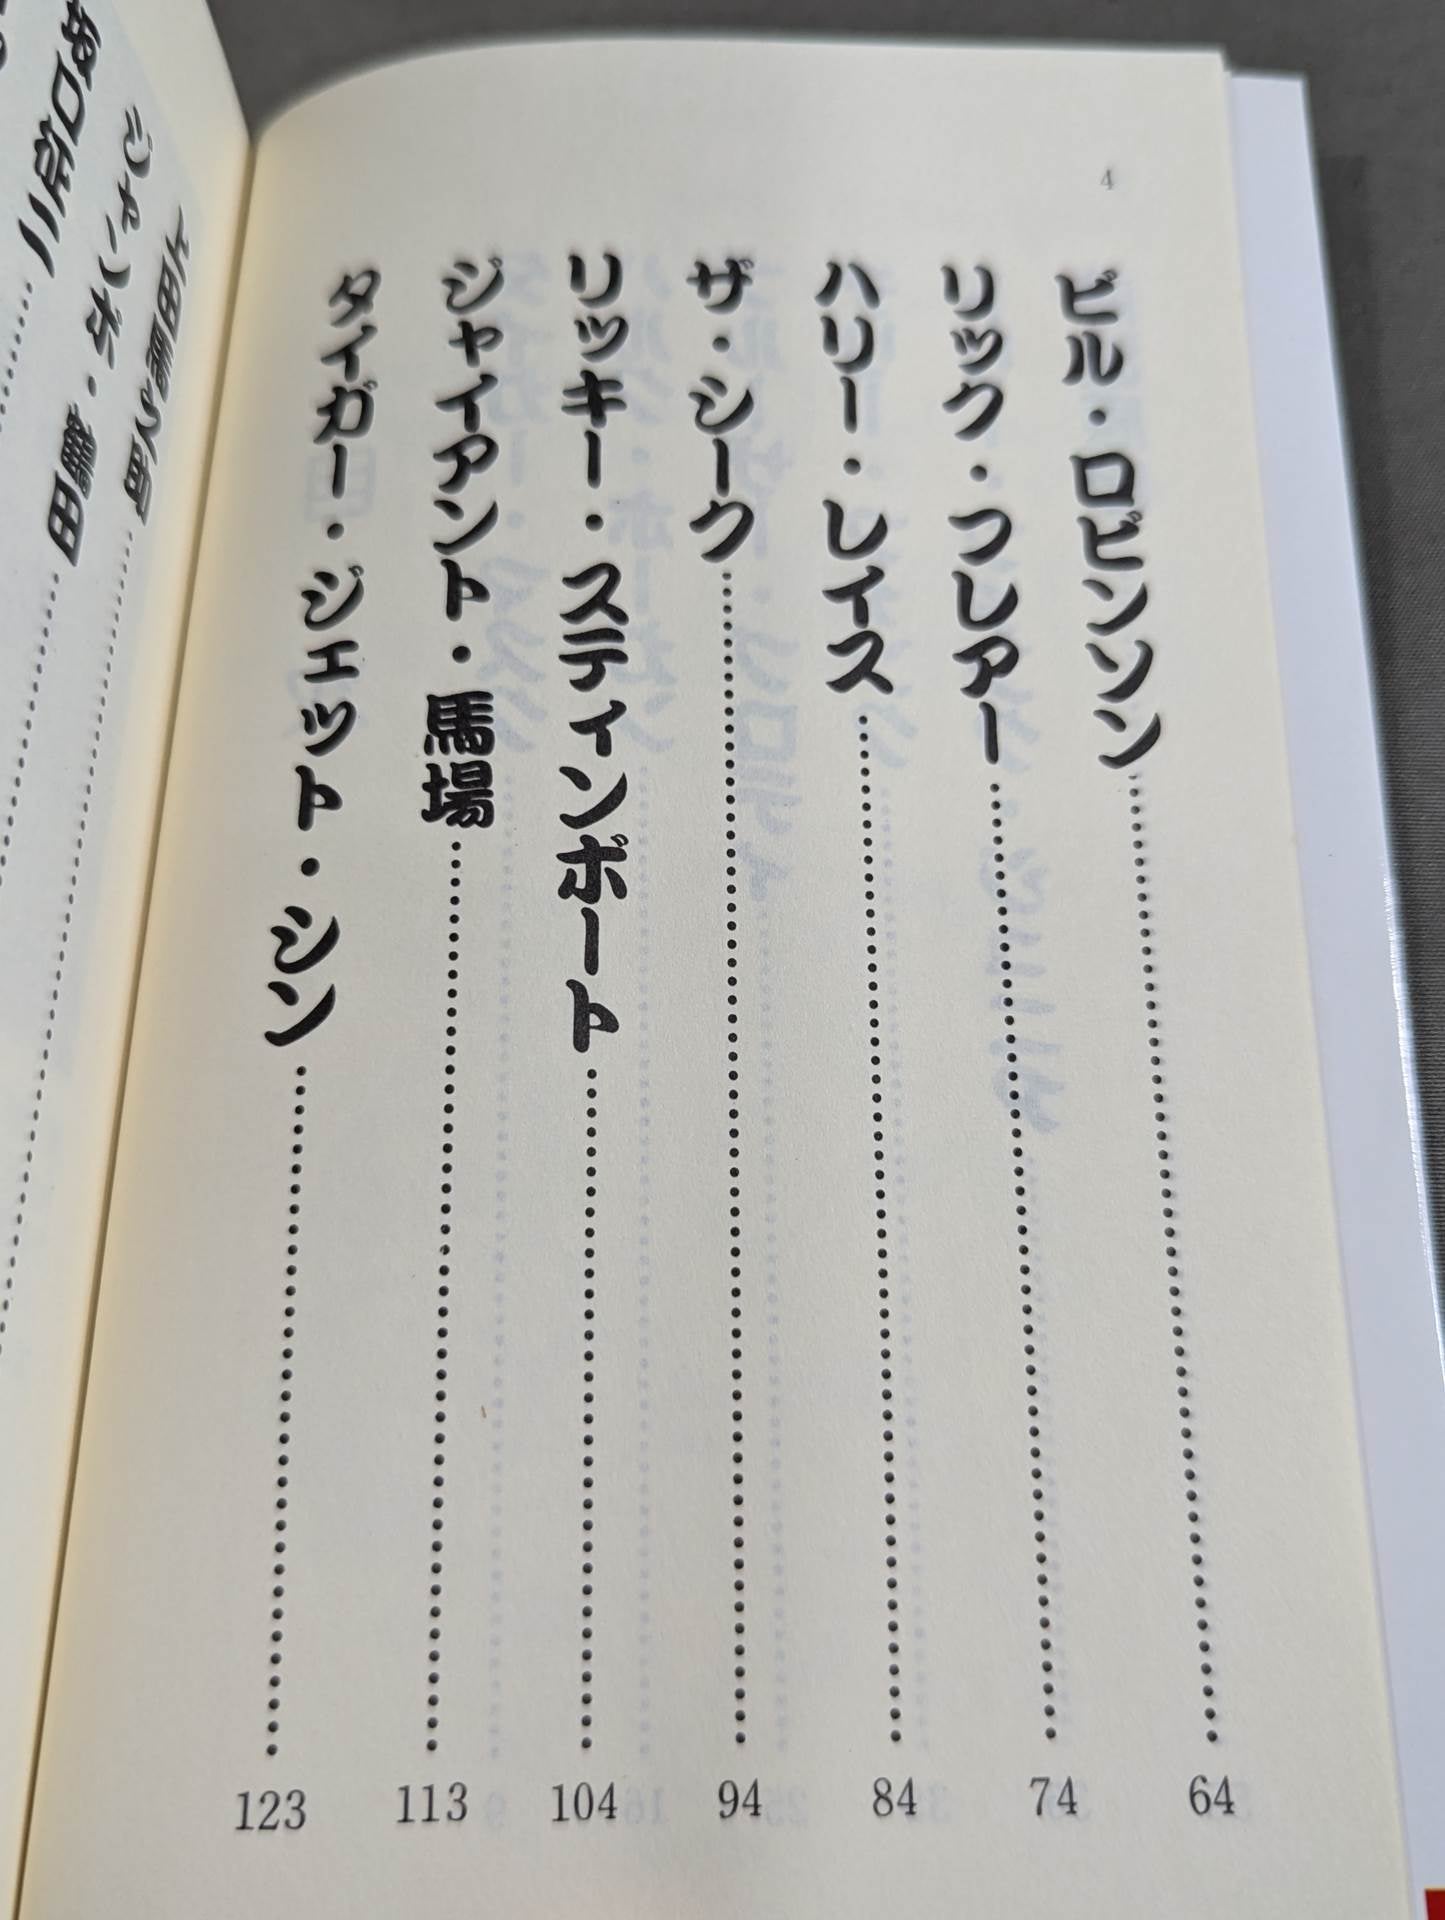 4
ビル・ロビンソン 64
リック・フレアー 74
ハリー・レイス 84
ザ・シーク 94
リッキー・スティンボート 104
ジャイアント・馬場 113
タイガー・ジェット・シン 123
上田馬之助
ジャンボ・鶴田
坂口征二